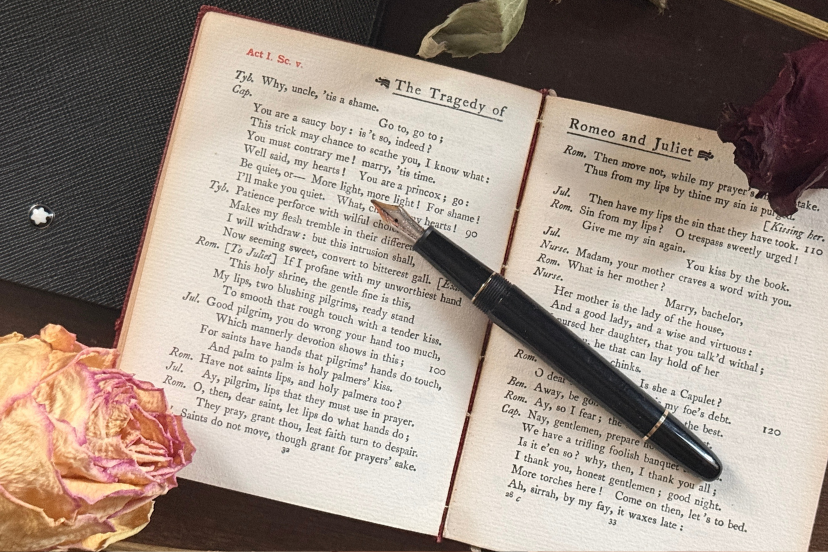 Act I. Sc. v.
The Tragedy of
Tyb. Why, uncle, 'tis a shame.
Cap. Go to, go to;
You are a saucy boy: is 't so, indeed?
This trick may chance to scathe you, I know what:
You must contrary me! marry, 'tis time.
Well said, my hearts! You are a princox; go:
Be quiet, or— More light, more light! For shame!
I'll make you quiet. What, hearts! 90
Tyb. Patience perforce with wilful
Makes my flesh tremble in their different
I will withdraw: but this intrusion shall,
Now seeming sweet, convert to bitterest gall.
Rom. [To Juliet] If I profane with my unworthiest hand
This holy shrine, the gentle fine is this,
My lips, two blushing pilgrims, ready stand
To smooth that rough touch with a tender kiss.
Jul. Good pilgrim, you do wrong your hand too much,
Which mannerly devotion shows in this;
For saints have hands that pilgrims' hands do touch, 100
And palm to palm is holy palmers' kiss.
Rom. Have not saints lips, and holy palmers too?
Jul. Ay, pilgrim, lips that they must use in prayer.
Rom. O, then, dear saint, let lips do what hands do;
They pray, grant thou, lest faith turn to despair.
Saints do not move, though grant for prayers' sake.
32
Romeo and Juliet
Rom. Then move not, while my prayer's take.
Thus from my lips by thine my sin is purged.
[Kissing her.
Jul. Then have my lips the sin that they have took. 110
Rom. Sin from my lips? O trespass sweetly urged!
Give me my sin again.
Jul. You kiss by the book.
Nurse. Madam, your mother craves a word with you.
Rom. What is her mother?
Nurse. Marry, bachelor,
Her mother is the lady of the house,
And a good lady, and a wise and virtuous:
her daughter, that you talk'd withal;
he that can lay hold of her
chinks.
Rom. Is she a Capulet?
O dear my foe's debt.
Ben. Away, be the best.
Rom. Ay, so I fear; the 120
Cap. Nay, gentlemen, prepare
We have a trifling foolish banquet
Is it e'en so? why, then, I thank you all;
I thank you, honest gentlemen; good night.
More torches here! Come on then, let's to bed.
Ah, sirrah, by my fay, it waxes late:
28 c
33